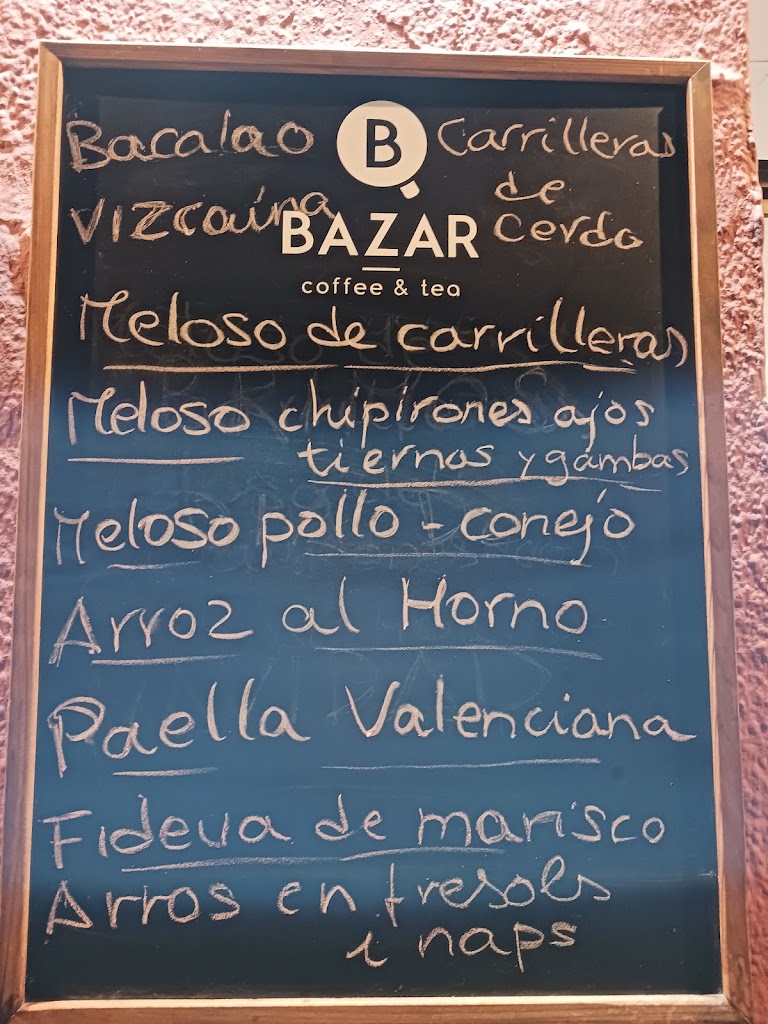 Bacalao
Vizcaína
B
BAZAR
coffee & tea
Carrilleras
de
Cerdo
Meloso de carrilleras
Meloso chipirones ajos
tiernos y gambas
Meloso pollo - conejo
Arroz al Horno
Paella Valenciana
Fideua de marisco
Arros en fresols
i naps